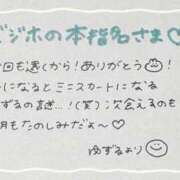 ビジホの本指名さま♡
今回も遠くから!ありがとう
になると ミニスカートになる
ゆずるの謎…!(笑)次会えるのも
月もたのしみだぁ〜♡
ゆずるより